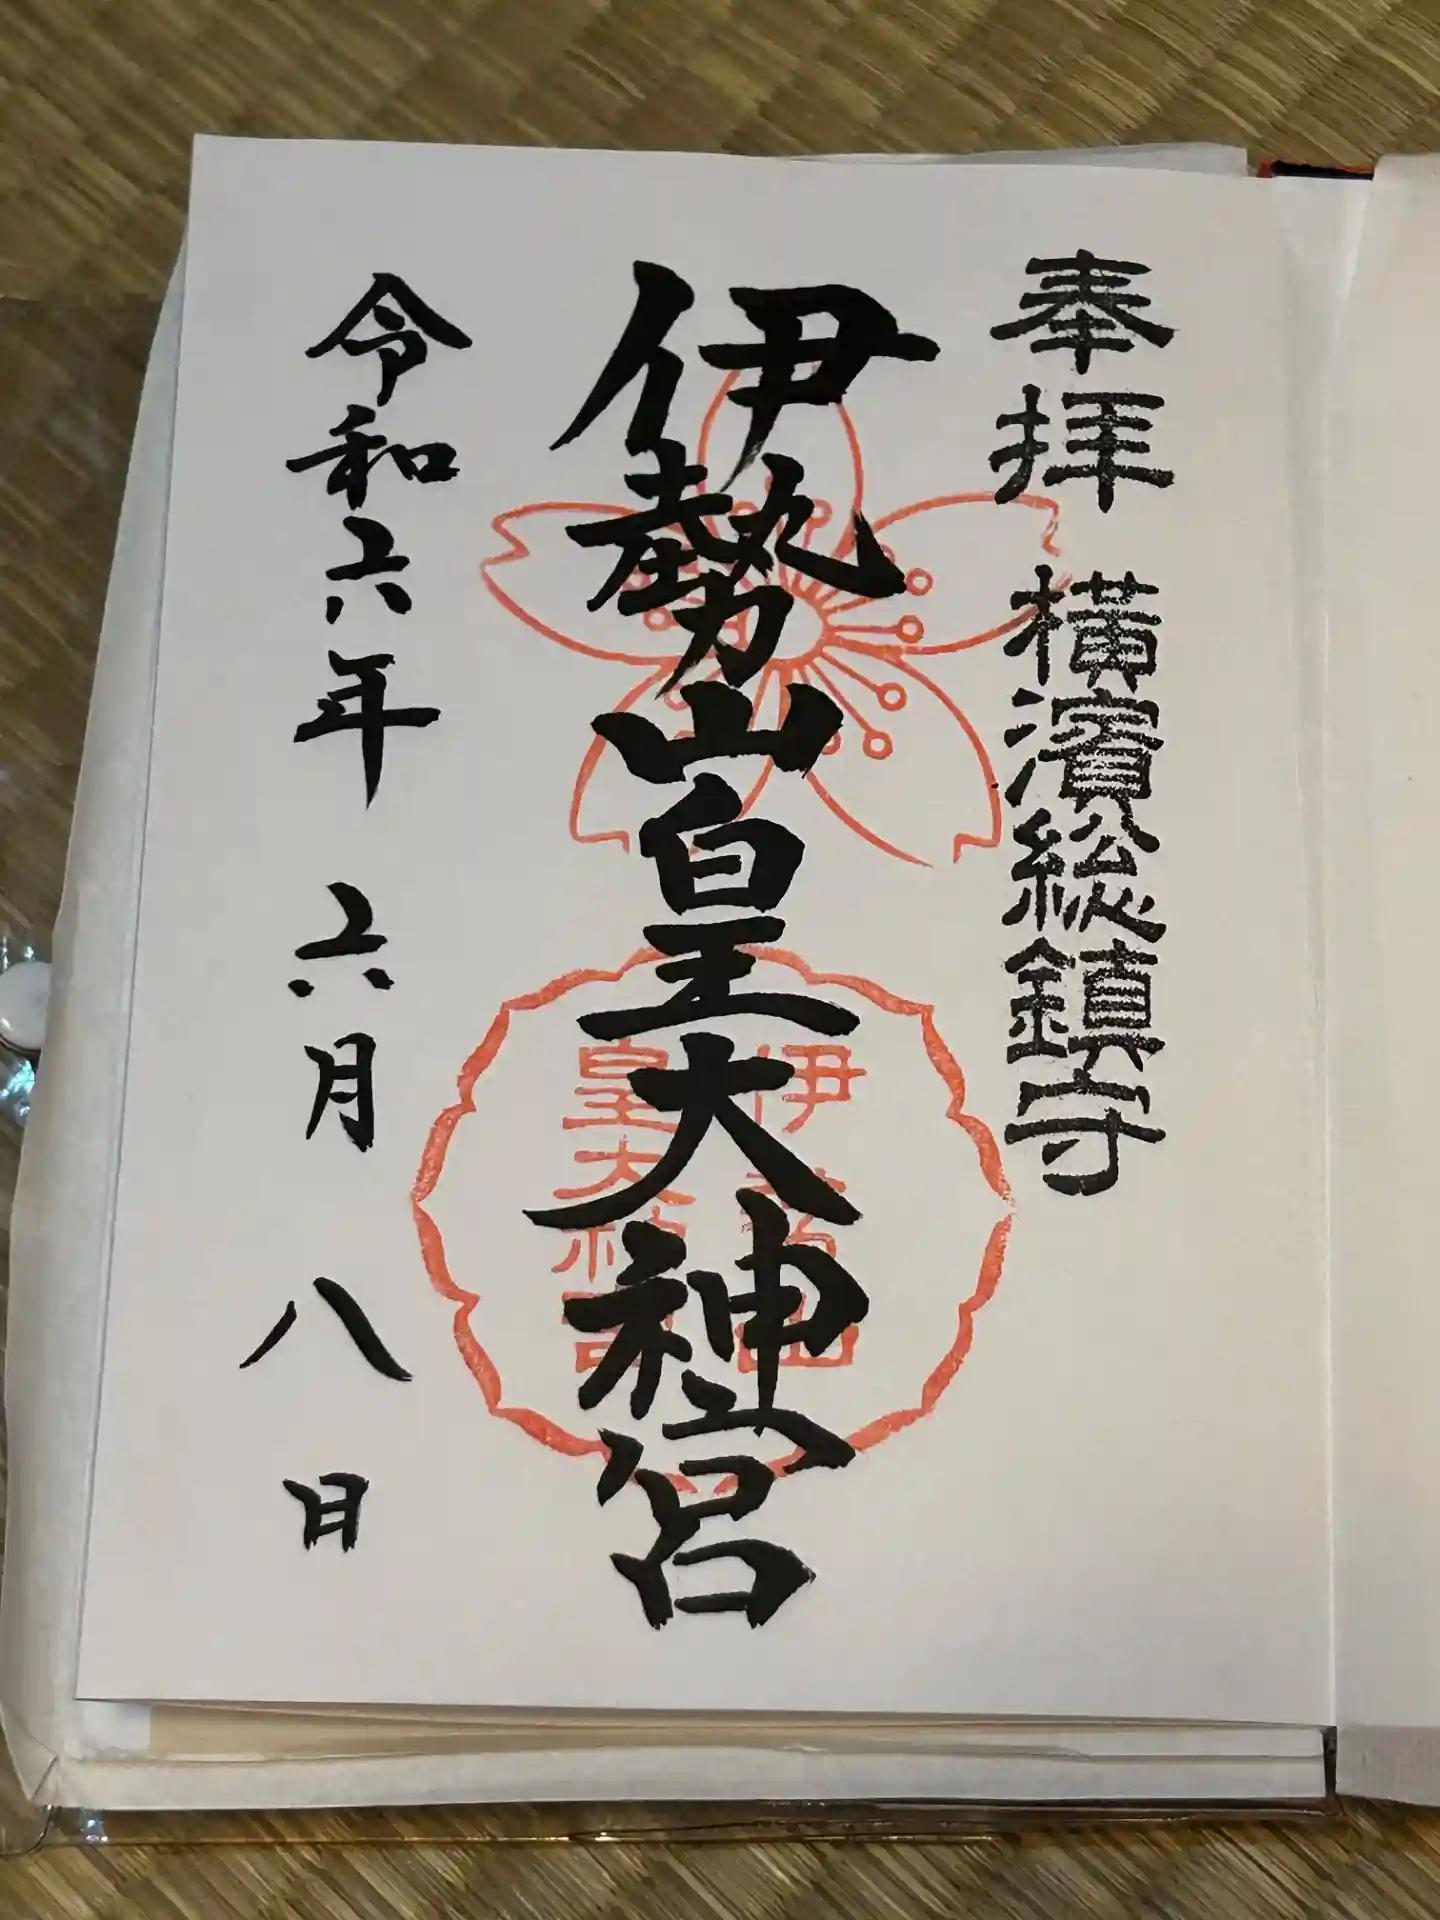 奉拝 横濱総鎮守
伊勢山皇大神宮
伊勢山
皇大神宮
令和六年 六月 八日